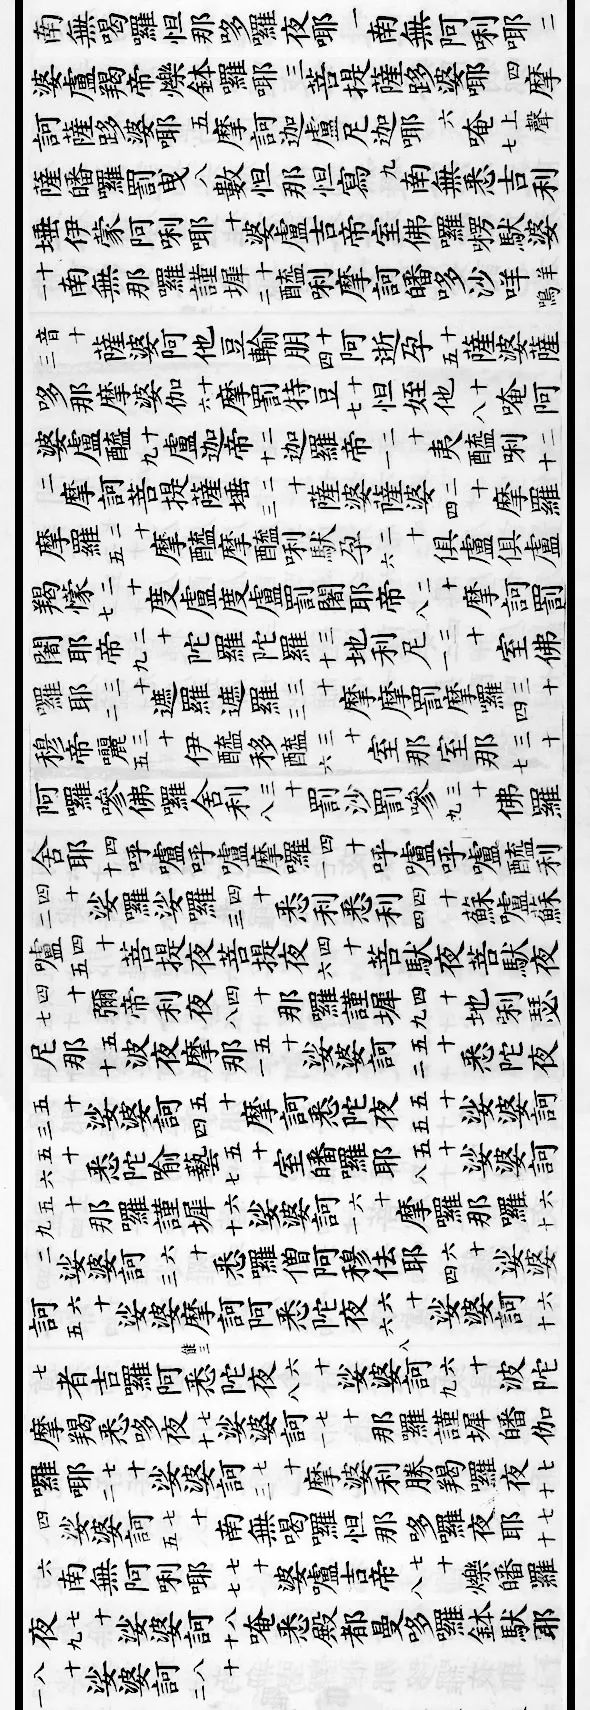 南無喝囉怛那哆囉夜㖿一南無阿唎㖿二
婆盧羯帝爍鉢囉㖿三菩提薩跢婆㖿四摩
訶薩跢婆㖿五摩訶迦盧尼迦㖿六唵上聲七
薩皤囉罰曳八數怛那怛寫九南無悉吉利
埵伊蒙阿唎㖿十婆盧吉帝室佛囉㘄馱婆
十一南無那囉謹墀十二醯唎摩訶皤哆沙咩羊鳴
音十三薩婆阿他豆輸朋十四阿逝孕十五薩婆薩
哆那摩婆伽十六摩罰特豆十七怛姪他十八唵阿
婆盧醯十九盧迦帝二十迦羅帝二十一夷醯唎二十
二摩訶菩提薩埵二十三薩婆薩婆二十四摩羅
摩羅二十五摩醯摩醯唎馱孕二十六俱盧俱盧
羯懞二十七度盧度盧罰闍耶帝二十八摩訶罰
闍耶帝二十九陀羅陀羅三十地利尼三十一室佛
囉耶三十二遮羅遮羅三十三摩摩罰摩囉三十四
穆帝囇三十五伊醯移醯三十六室那室那三十七
阿囉嘇佛囉舍利三十八罰沙罰嘇三十九佛羅
舍耶四十呼嚧呼嚧摩囉四十一呼嚧呼嚧醯利
四十二娑囉娑囉四十三悉利悉利四十四蘇嚧蘇
嚧四十五菩提夜菩提夜四十六菩馱夜菩馱夜
四十七彌帝利夜四十八那囉謹墀四十九地唎瑟
尼那五十波夜摩那五十一娑婆訶五十二悉陀夜
五十三娑婆訶五十四摩訶悉陀夜五十五娑婆訶
五十六悉陀喻藝五十七室皤囉耶五十八娑婆訶
五十九那囉謹墀六十娑婆訶六十一摩囉那羅六十
二娑婆訶六十三悉囉僧阿穆佉耶六十四娑婆
訶六十五娑婆摩訶阿悉陀夜六十六娑婆訶六十
七者吉囉阿悉陀夜六十八娑婆訶六十九波陀
摩羯悉哆夜七十娑婆訶七十一那囉謹墀皤伽
囉㖿七十二娑婆訶七十三摩婆利勝羯囉夜七十
四娑婆訶七十五南無喝囉怛那哆囉夜耶七十
六南無阿唎㖿七十七婆嚧吉帝七十八爍皤羅
夜七十九娑婆訶八十唵悉殿都曼哆囉鉢馱耶
八十一娑婆訶八十二